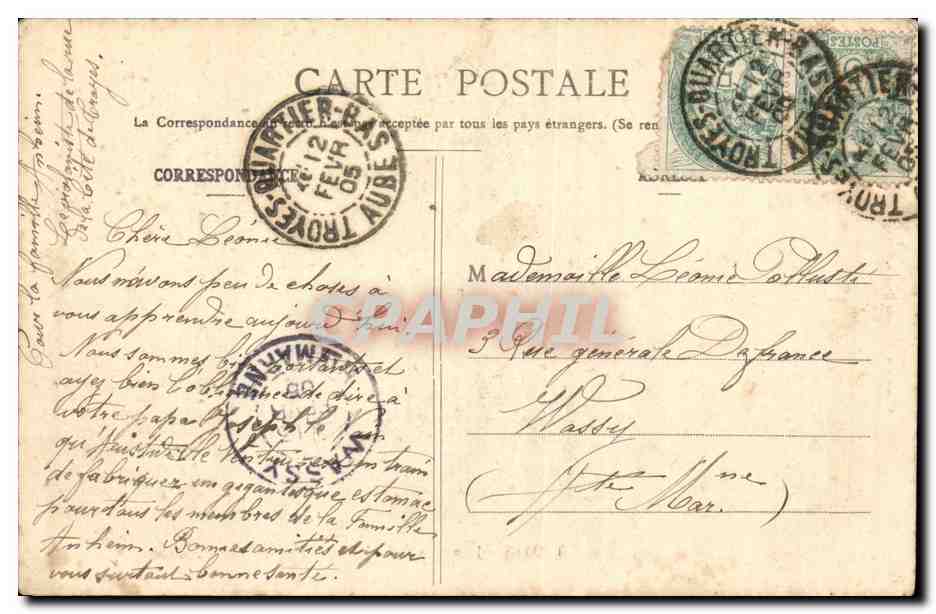 CARTE POSTALE
La Correspondance au recto n'est pas acceptée par tous les pays étrangers. (Se ren
CORRESPONDANCE
TROYES-QUARTIER-BAS
AUBE
12
FEVR
05
TROYES-QUARTIER-BAS
12
FEVR
05
POSTES
Chère Léonie
Nous n'avons peu de choses à
vous apprendre aujourd'hui
Nous sommes bien portants et
ayez bien l'obligeance de dire à
votre papa Joseph le
qu'Aristide le est en train
de fabriquer un gigantesque estomac
pour tous les membres de la Famille
Anheim. Bonnes amitiés et pour
vous surtout bonne santé.
Pour la famille Anheim.
de la rue
de la Cité de Troyes.
Mademoiselle Léonie
3 Rue générale Defrance
Wassy
(Hte Marne)
WASSY
HTE MARNE
05
CPAPHIL